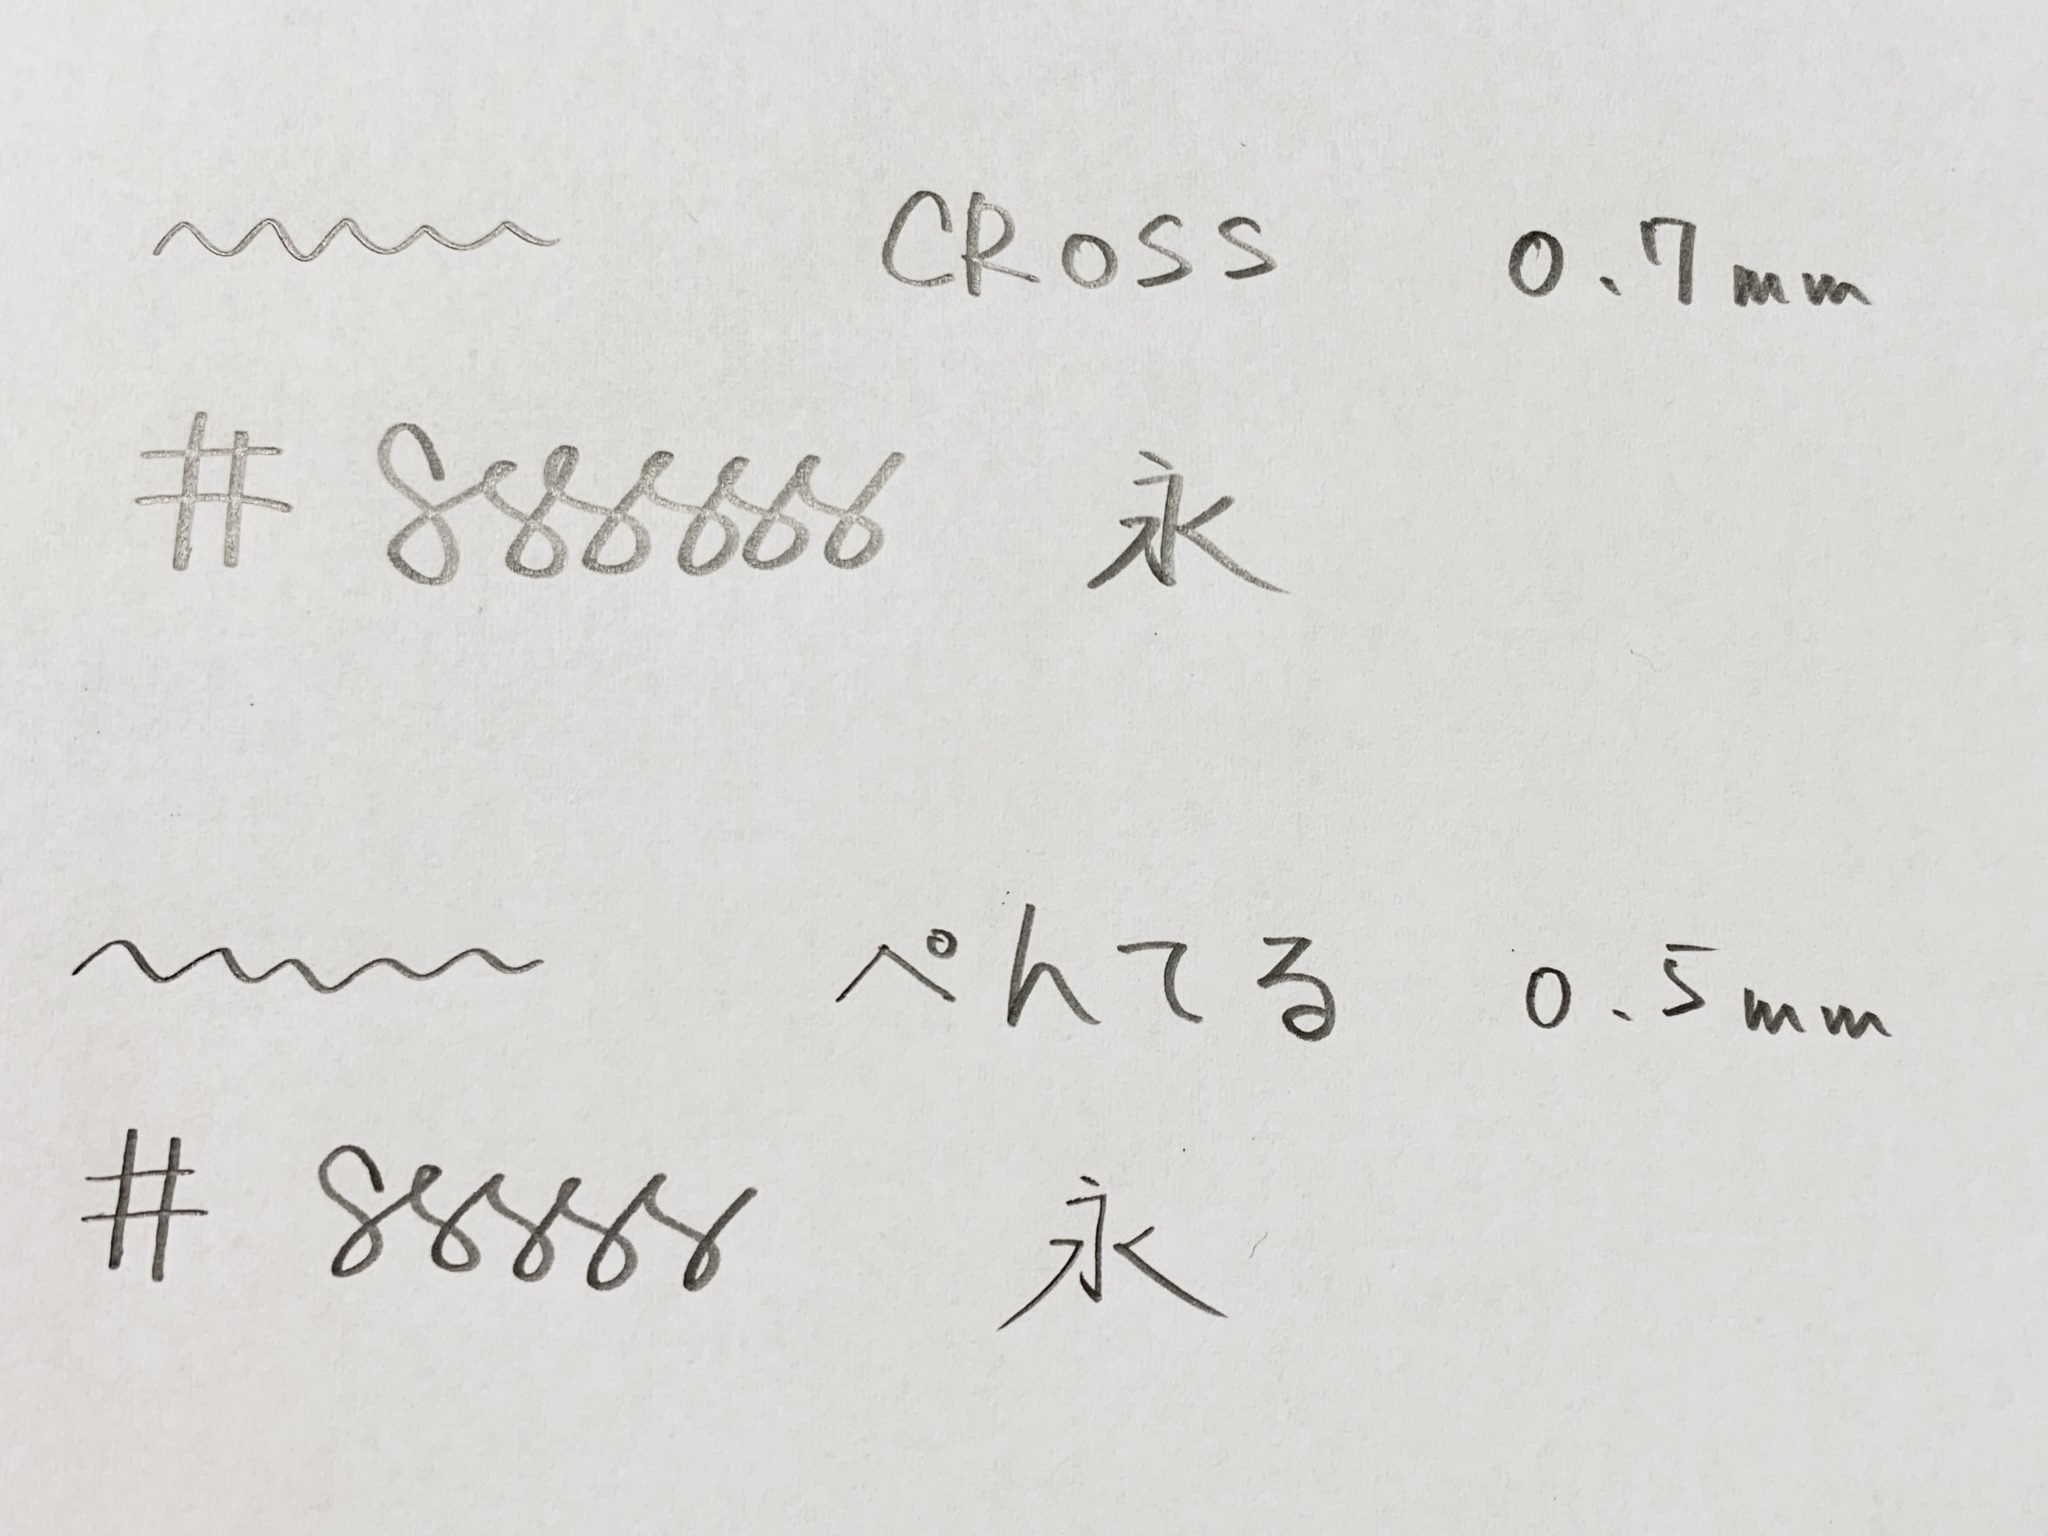 CROSS 0.7mm
# 888888 永
ぺんてる 0.5mm
# 88888 永